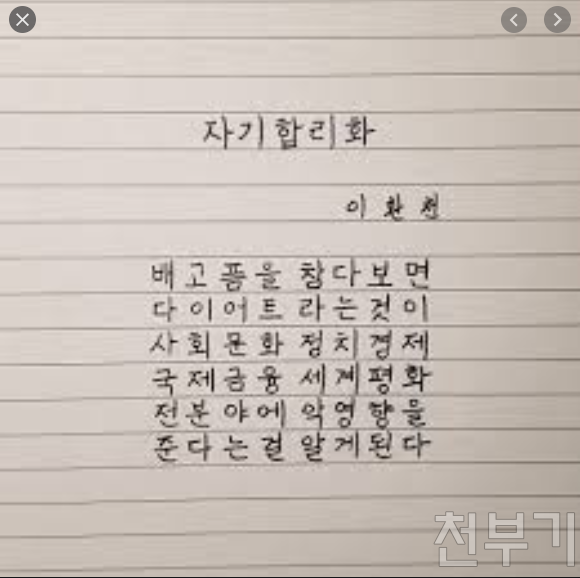 자기합리화
이환천
배고픔을 참다보면
다이어트 라는것이
사회문화 정치경제
국제금융 세계평화
전분야에 악영향을
준다는걸 알게된다
천부기